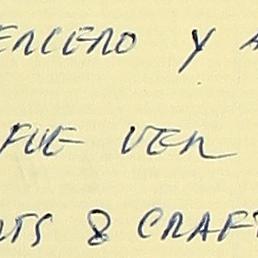 ERCERO Y A
FUE VER
RTS & CRAFT